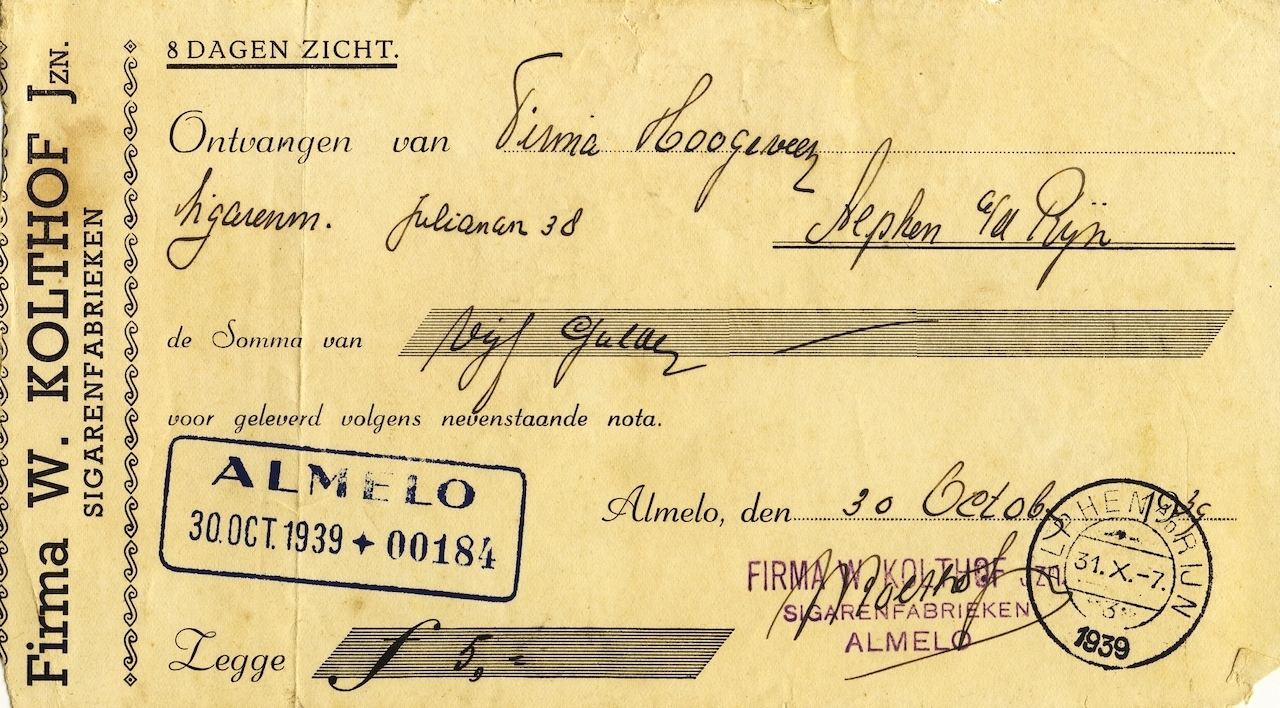 Firma W. KOLTHOF JZN.
SIGARENFABRIEKEN
8 DAGEN ZICHT.
Ontvangen van Firma Hoogeveen
Sigarenm. Julianan 38 Alephen a/d Rijn
de Somma van Vijf Gulden
voor geleverd volgens nevenstaande nota.
ALMELO
30.OCT.1939 ✦ 00184
Almelo, den 30 Octob 1939
FIRMA W. KOLTHOF JZN.
SIGARENFABRIEKEN
ALMELO
W Kolthof
ALPHEN A/D RIJN
31.X.-7.
3
1939
Zegge f 5,-